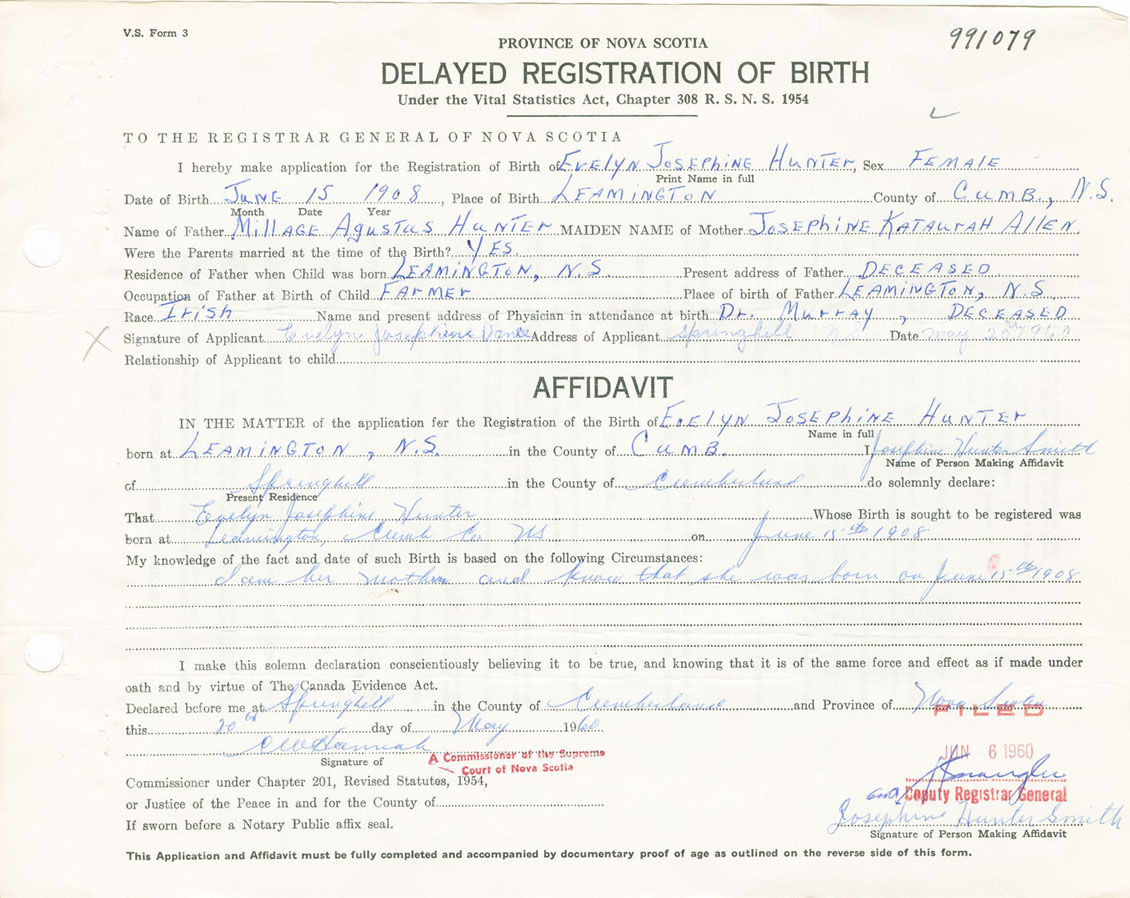 V.S. Form 3
991079
PROVINCE OF NOVA SCOTIA
DELAYED REGISTRATION OF BIRTH
Under the Vital Statistics Act, Chapter 308 R. S. N. S. 1954
TO THE REGISTRAR GENERAL OF NOVA SCOTIA
I hereby make application for the Registration of Birth of EVELYN JOSEPHINE HUNTER, Sex FEMALE
Print Name in full
Date of Birth JUNE 15 1908, Place of Birth LEAMINGTON County of CUMB., N.S.
Month Date Year
Name of Father MILLAGE AGUSTUS HUNTER MAIDEN NAME of Mother JOSEPHINE KATAURAH ALLEN.
Were the Parents married at the time of the Birth? YES
Residence of Father when Child was born LEAMINGTON, N.S. Present address of Father DECEASED
Occupation of Father at Birth of Child FARMER Place of birth of Father LEAMINGTON, N.S.
Race Irish Name and present address of Physician in attendance at birth Dr. MURRAY, DECEASED
Signature of Applicant Evelyn Josephine Address of Applicant Springhill N.S. Date May 20th 1960
Relationship of Applicant to child
AFFIDAVIT
IN THE MATTER of the application for the Registration of the Birth of EVELYN JOSEPHINE HUNTER
Name in full
born at LEAMINGTON, N.S. in the County of CUMB. I Josephine Hunter Smith
Name of Person Making Affidavit
of Springhill in the County of Cumberland do solemnly declare:
Present Residence
That Evelyn Josephine Hunter Whose Birth is sought to be registered was
born at Leamington, Cumb Co. NS on June 15th 1908
My knowledge of the fact and date of such Birth is based on the following Circumstances:
I am her mother and know that she was born on June 15th 1908
I make this solemn declaration conscientiously believing it to be true, and knowing that it is of the same force and effect as if made under
oath and by virtue of The Canada Evidence Act.
Declared before me at Springhill in the County of Cumberland and Province of Nova Scotia
FILED
this 20th day of May 1960
JUN 6 1960
Signature of
A Commissioner of the Supreme
Court of Nova Scotia
Commissioner under Chapter 201, Revised Statutes, 1954,
Deputy Registrar General
or Justice of the Peace in and for the County of
Josephine Hunter Smith
If sworn before a Notary Public affix seal.
Signature of Person Making Affidavit
This Application and Affidavit must be fully completed and accompanied by documentary proof of age as outlined on the reverse side of this form.